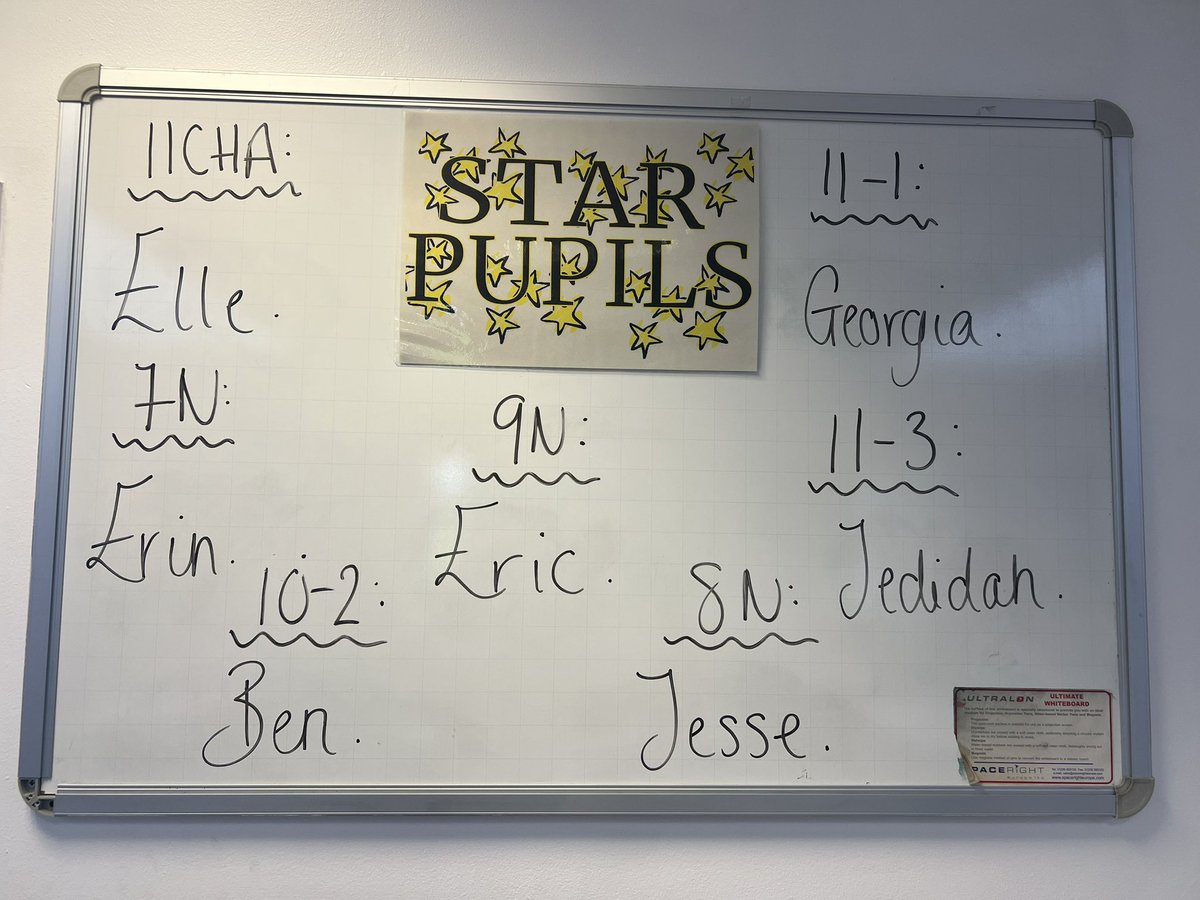 11CHA:
Elle.
STAR
PUPILS
11-1:
Georgia.
7N:
Erin.
9N:
Eric.
11-3:
Jedidah.
10-2:
Ben.
8N:
Jesse.
ULTRALON
ULTIMATE
WHITEBOARD
Magnetic
SPACERIGHT
www.spacerighteurope.com